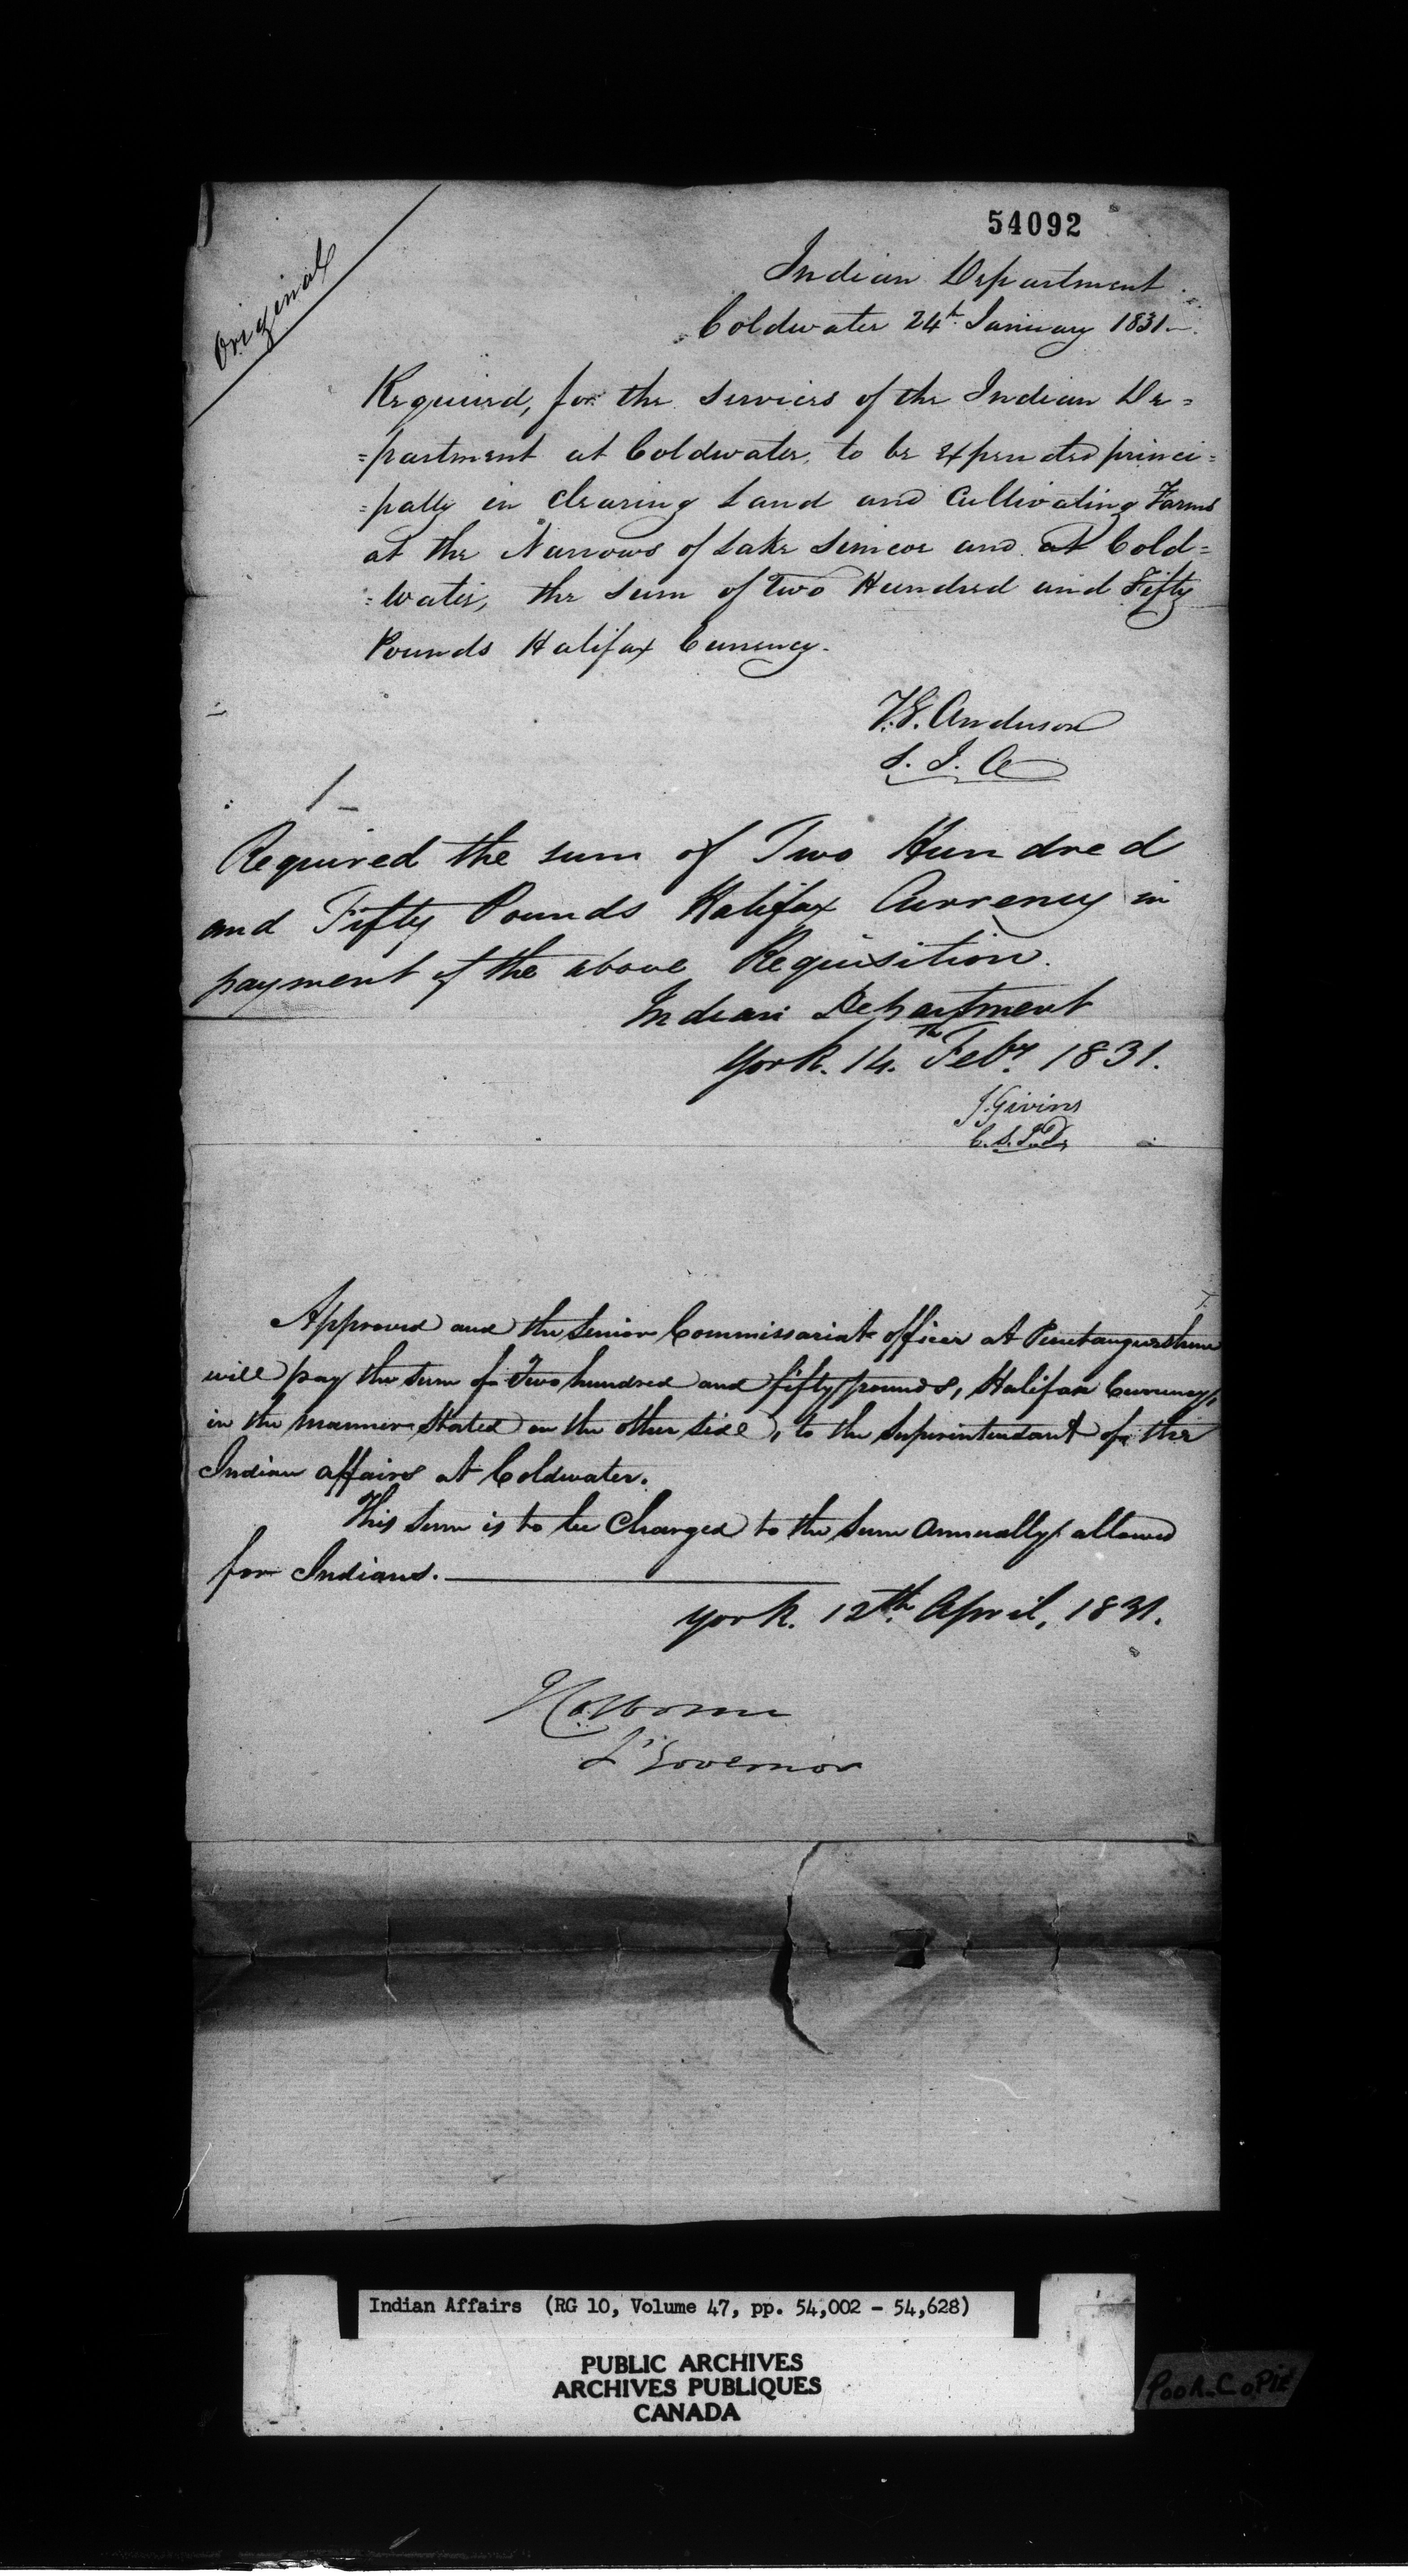 54092
Original
Indian Department
Coldwater 24th January 1831
Required, for the services of the Indian De=
=partment at Coldwater, to be expended princi=
=pally in clearing Land and Cultivating Farms
at the Narrows of Lake Simcoe and at Cold=
=water, the sum of Two Hundred and Fifty
Pounds Halifax Currency.
T.G. Anderson
S. I. A
Required the sum of Two Hundred
and Fifty Pounds Halifax Currency in
payment of the above Requisition.
Indian Department
York. 14th Feby. 1831.
J. Givins
C. S. I. D.
Approved and the Senior Commissariat officer at Penetanguishene
will pay the sum of Two hundred and fifty pounds, Halifax Currency,
in the manner Stated on the other side, to the Superintendant of the
Indian affairs at Coldwater.
This sum is to be Charged to the sum annually allowed
for Indians.
York. 12th April, 1831.
J Colborne
Lt Governor
Indian Affairs (RG 10, Volume 47, pp. 54,002 - 54,628)
PUBLIC ARCHIVES
ARCHIVES PUBLIQUES
CANADA
Poor Copie